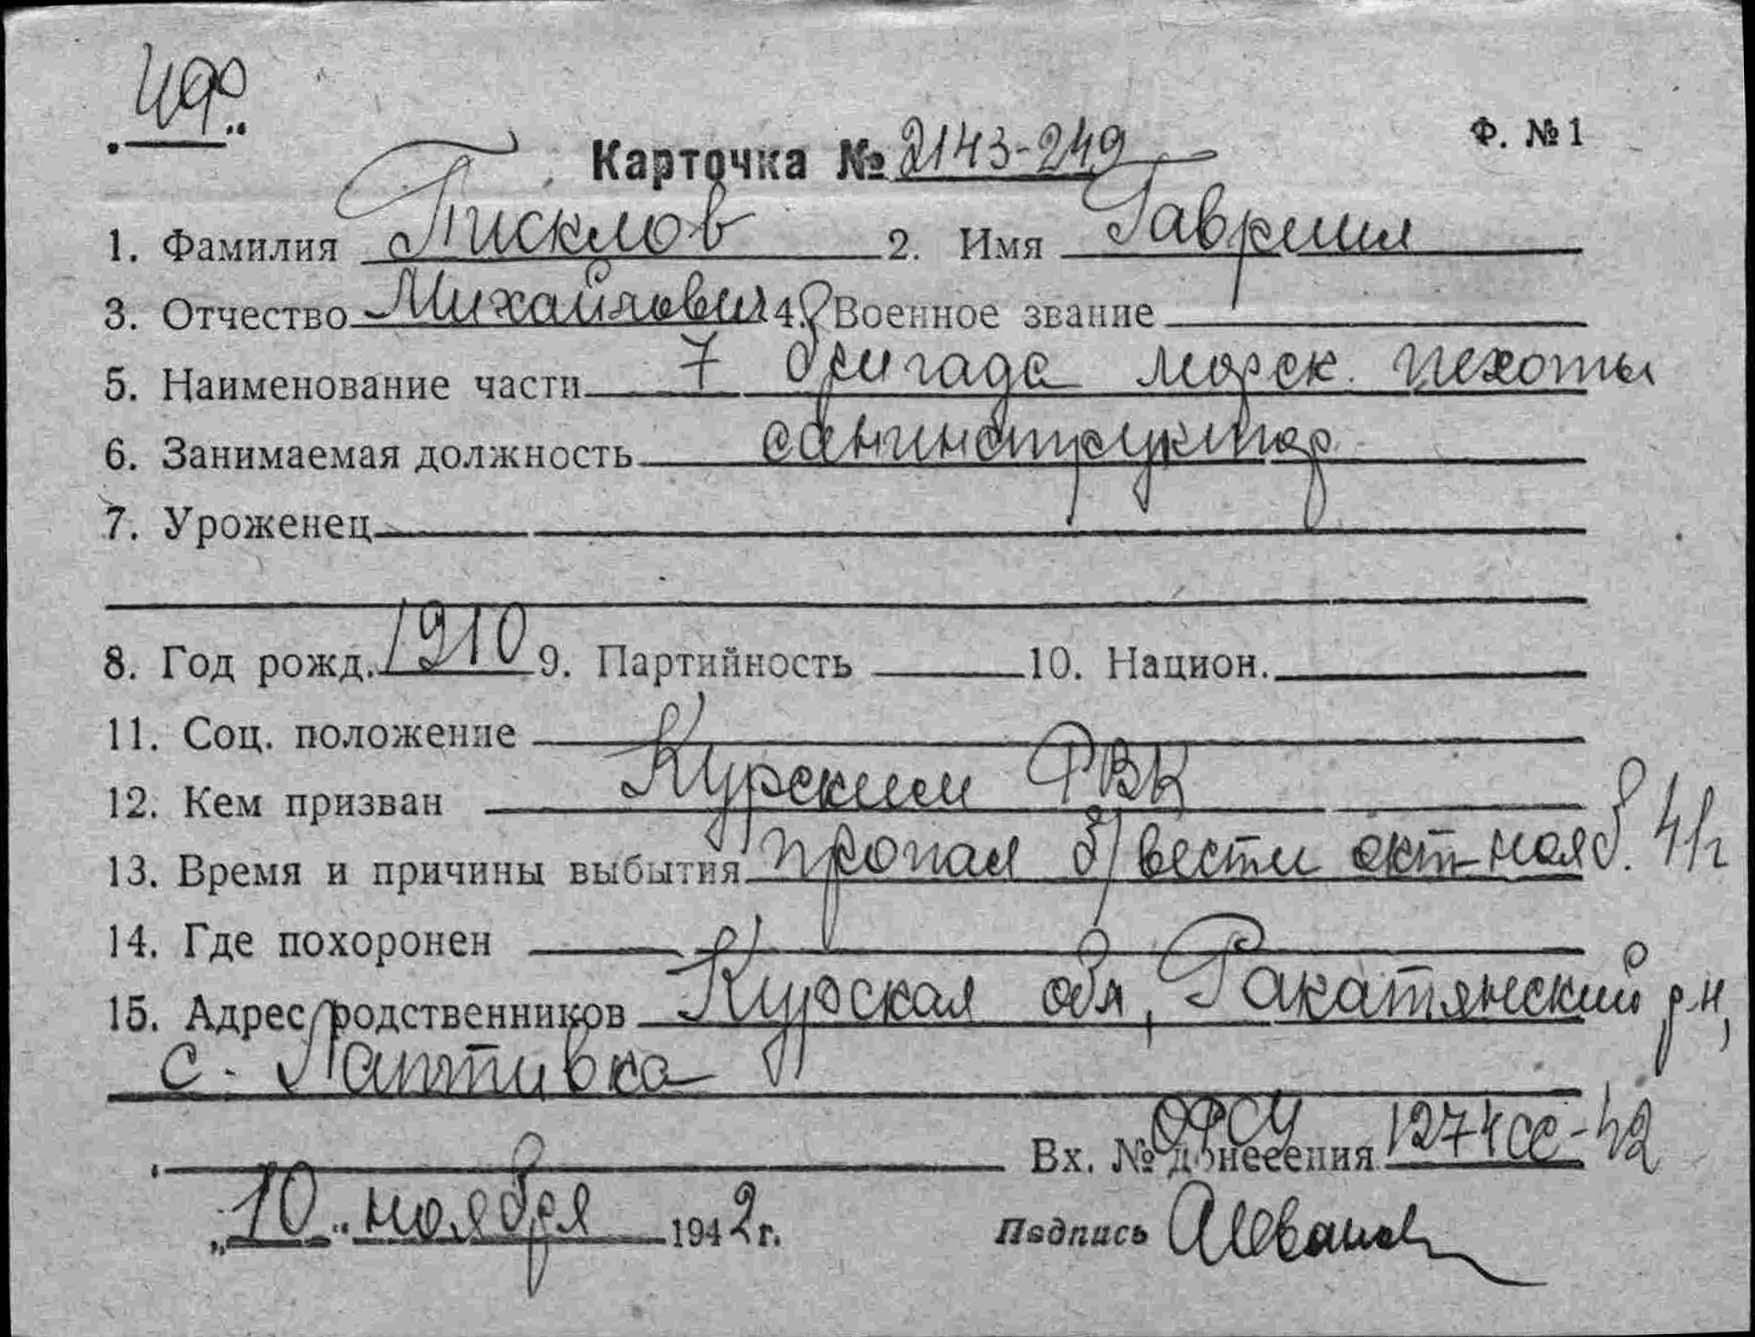 Ф. №1
Карточка № 2143-249
1. Фамилия Тисклов 2. Имя Гавриил
3. Отчество Михайлович 4. Военное звание
5. Наименование части 7 бригада морск. пехоты
6. Занимаемая должность санинструктор
7. Уроженец
8. Год рожд. 1910 9. Партийность 10. Национ.
11. Соц. положение
12. Кем призван Курским РВК
13. Время и причины выбытия пропал б/вести окт-нояб. 41г
14. Где похоронен
15. Адрес родственников Курская обл, Ракатянский р-н,
с. Лаптивка
Вх. № донесения 1274сс-42
„10“ ноября 1942г.
Подпись